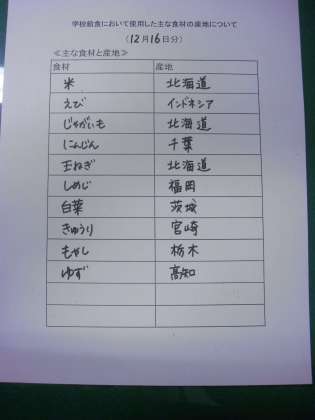 学校給食において使用した主な食材の産地について
(12月16日分)
≪主な食材と産地≫
食材 産地
米 北海道
えび インドネシア
じゃがいも 北海道
にんじん 千葉
玉ねぎ 北海道
しめじ 福岡
白菜 茨城
きゅうり 宮崎
もやし 栃木
ゆず 高知